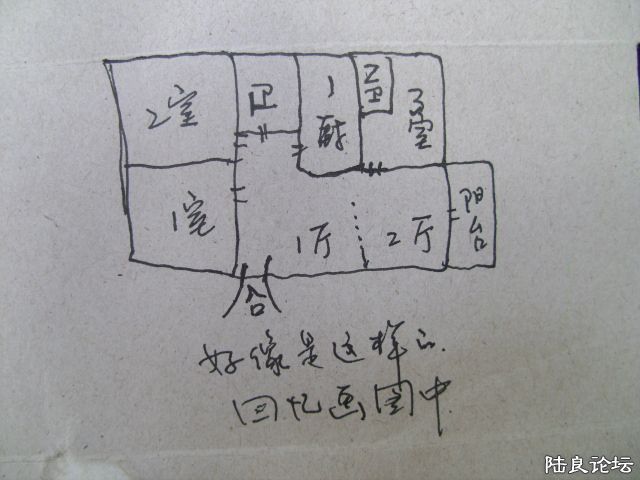 2室
卫
1
厨
卫
3室
1室
1厅
2厅
阳台
合
好像是这样的.
回忆画图中
陆良论坛